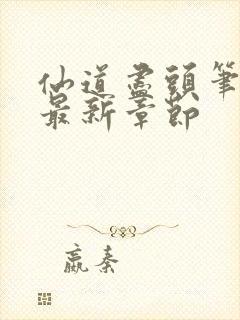 仙道盡頭筆
最新章節
嬴秦